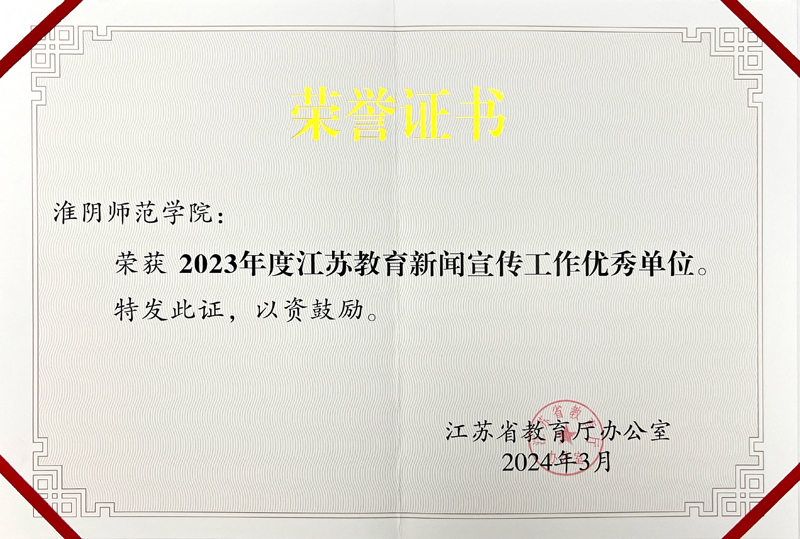 荣誉证书
淮阴师范学院：
荣获 2023年度江苏教育新闻宣传工作优秀单位。
特发此证，以资鼓励。
江苏省教育厅办公室
2024年3月
江苏省教育厅
办公室